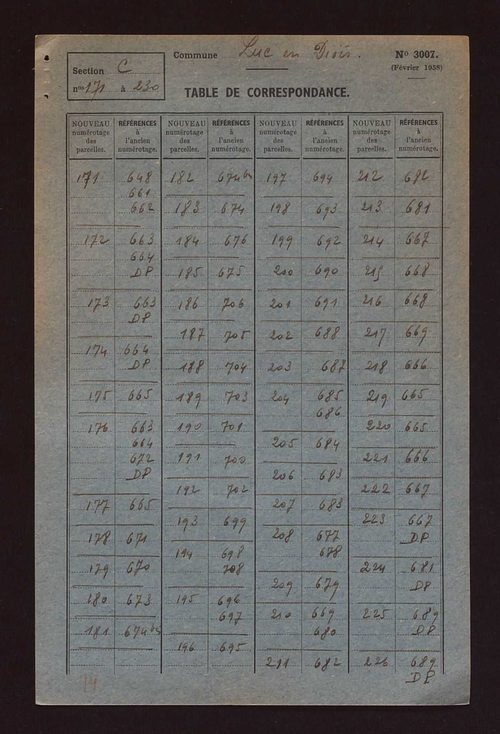 Section C
nos 171 à 230
Commune Luc en Diois.
No 3007.
(Février 1938)
TABLE DE CORRESPONDANCE.
NOUVEAU
numérotage
des
parcelles.
RÉFÉRENCES
à
l'ancien
numérotage.
171 648
661
662
172 663
664
DP
173 663
DP
174 664
DP
175 665
176 663
664
672
DP
177 665
178 671
179 670
180 673
181 674 bis
NOUVEAU
numérotage
des
parcelles.
RÉFÉRENCES
à
l'ancien
numérotage.
182 674 bis
183 674
184 676
185 675
186 706
187 705
188 704
189 703
190 701
191 700
192 702
193 699
194 698
708
195 696
697
196 695
NOUVEAU
numérotage
des
parcelles.
RÉFÉRENCES
à
l'ancien
numérotage.
197 694
198 693
199 692
200 690
201 691
202 688
203 687
204 685
686
205 684
206 683
207 683
208 677
678
209 679
210 669
680
211 682
NOUVEAU
numérotage
des
parcelles.
RÉFÉRENCES
à
l'ancien
numérotage.
212 682
213 681
214 667
215 668
216 668
217 669
218 666
219 665
220 665
221 666
222 667
223 667
DP
224 681
DP
225 689
DP
226 689
DP